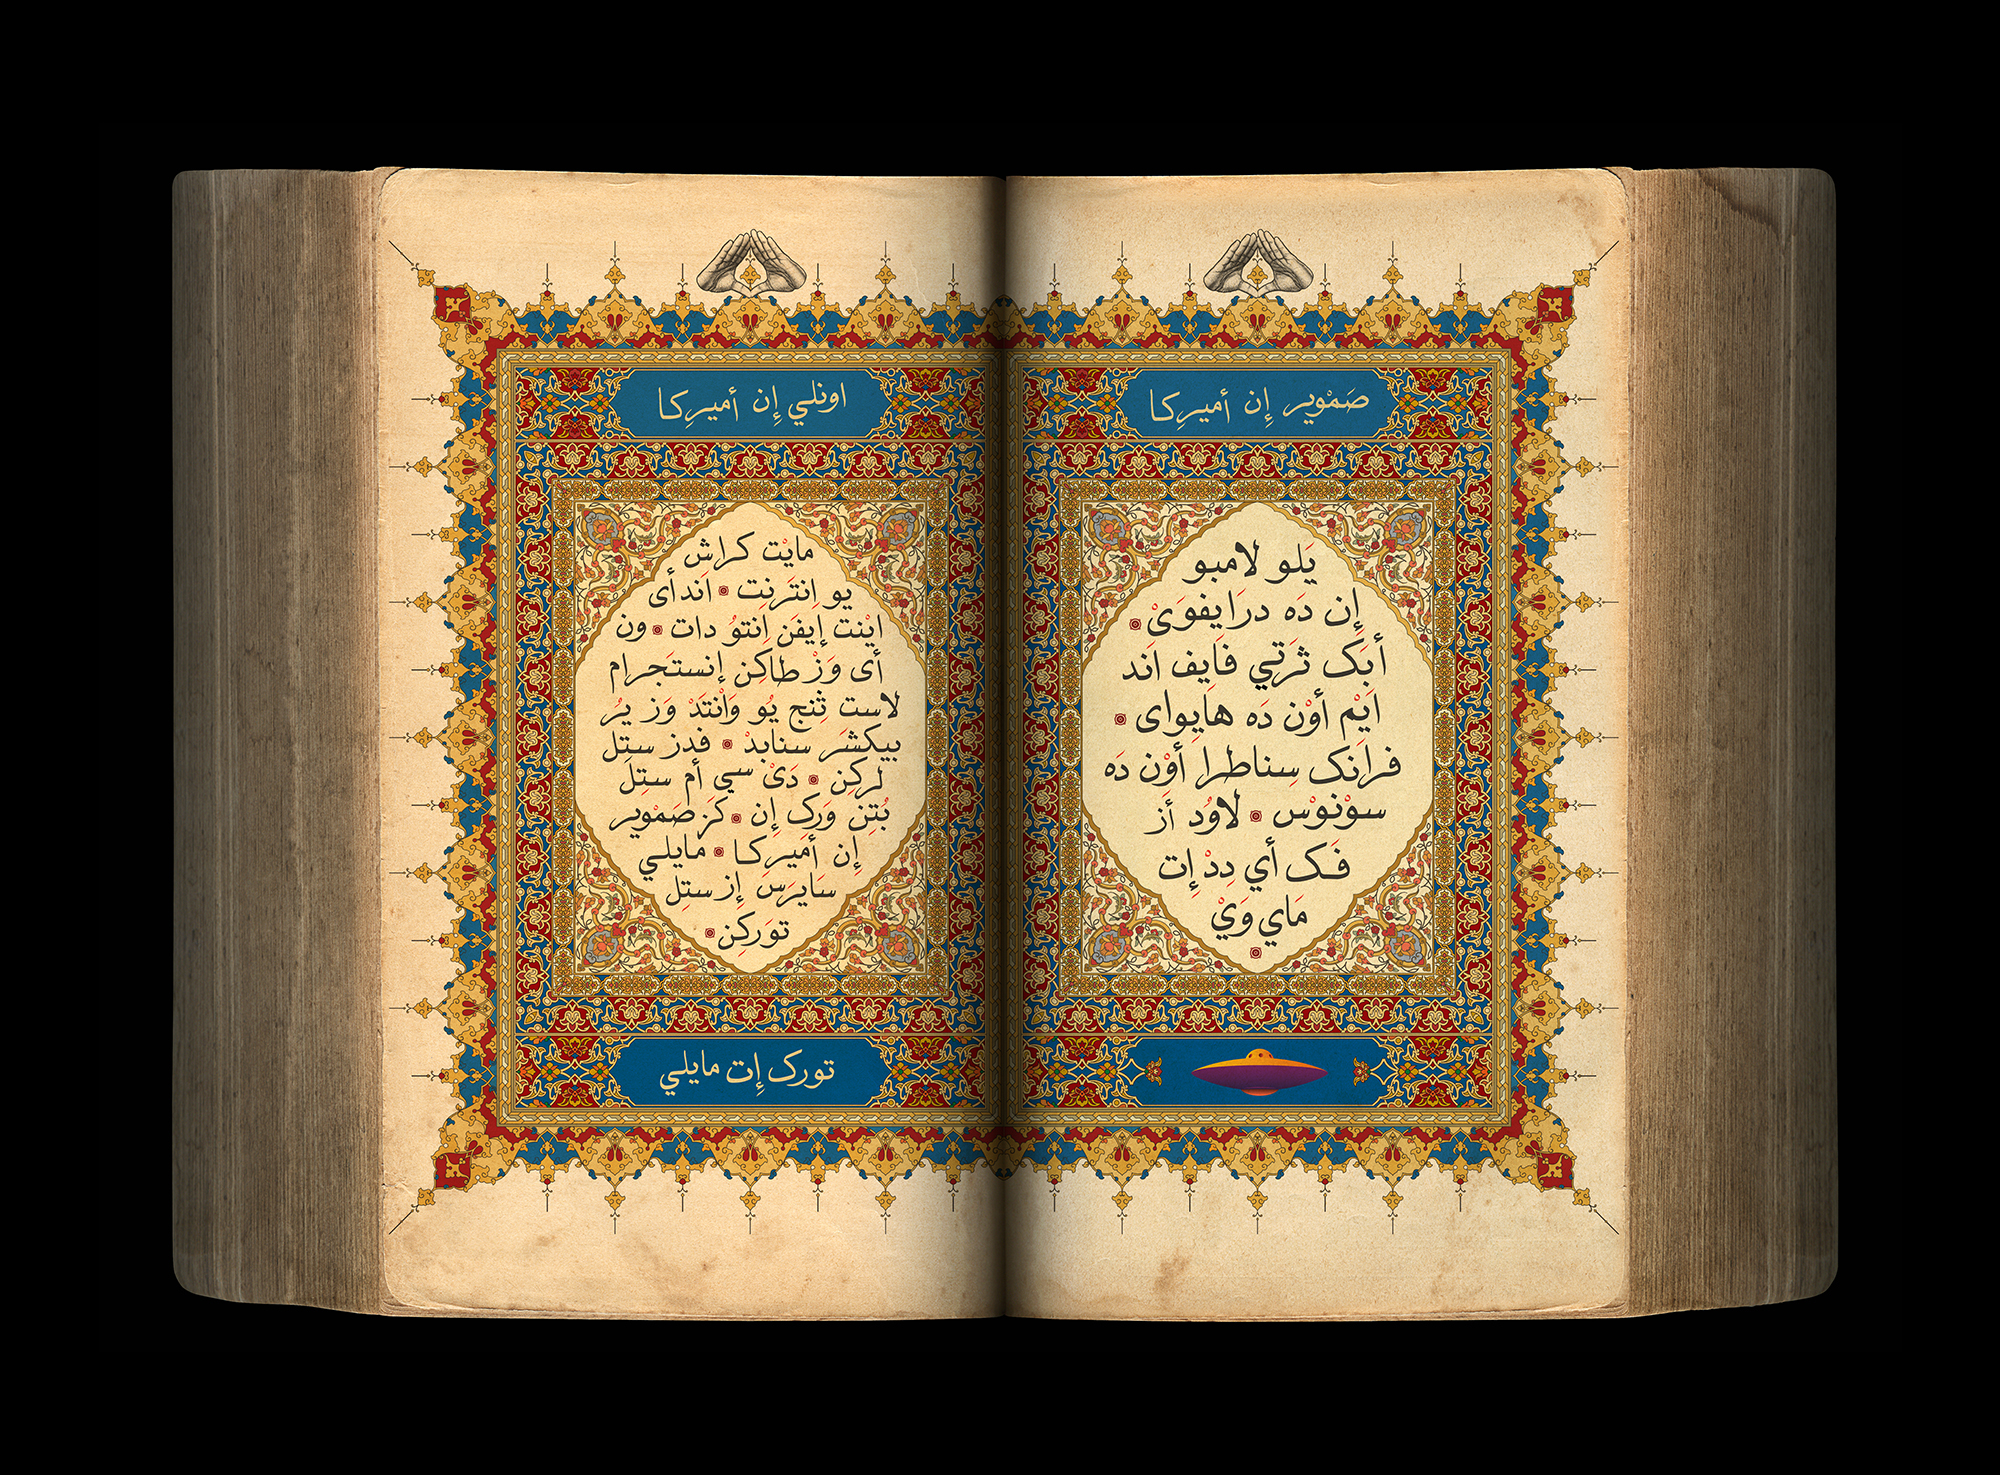 صَمْوِير إِن أميرِكا
يَلو لامبو
إِن دَه درَايفوَىْ
أبَک ثرَتي فَايف اَند
ايَم أوْن دَه هايِواى
فرانک سِناطرا أوْن دَه
سوْنوْس لاوُد أز
فَک أي دِدْ إِت
مَاي وَيْ
اونلي إِن أميرِكا
مايْت كراش
يو اِنتَرنِت اَند أى
اينْت إِيفَن اِنتوُ دات ون
أى وَزْ طاكِن إنستَجرام
لاست ثِنج يُو وَانْتَدْ وَز يرُ
بيكشَر سنابدْ فدز ستِل
لركِن دَىْ سي أم ستِل
بُتِن وَرک إِن كَز صَمْوِير
إِن أمَيرِكا مايلي
سايرَس إِز ستِل
توَركِن
تورک إِت مايلي